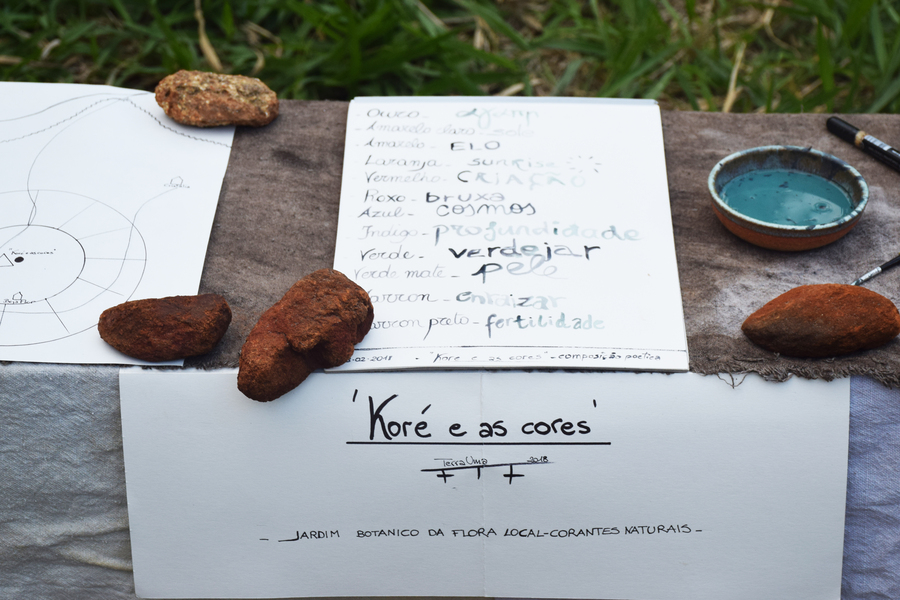 - Ouro -
- Amarelo claro - sole
- Amarelo - ELO
Laranja - sunrise
Vermelho - CRIAÇÃO
Roxo - bruxa
Azul - cosmos
Indigo - profundidade
Verde - verdejar
Verde mate - pele
arron - enraizar
arron preto - fertilidade
-02-2018 - "Koré e as cores" - composição poética
'Koré e as cores'
TerraUna 2018
- JARDIM BOTANICO DA FLORA LOCAL-CORANTES NATURAIS -